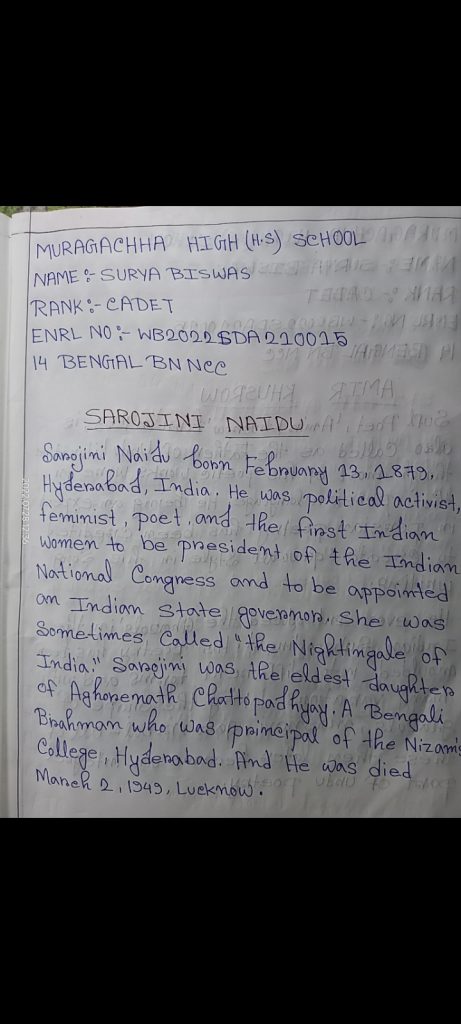 MURAGACHHA HIGH (H.S) SCHOOL
NAME :- SURYA BISWAS
RANK :- CADET
ENRL NO :- WB2022SDA210015
14 BENGAL BN NCC
SAROJINI NAIDU
Sarojini Naidu born February 13, 1879,
Hyderabad, India. He was political activist,
feminist, poet, and the first Indian
women to be president of the Indian
National Congress and to be appointed
an Indian State governor. She was
Sometimes Called "the Nightingale of
India." Sarojini was the eldest daughter
of Aghorenath Chattopadhyay. A Bengali
Brahman who was principal of the Nizam's
College, Hyderabad. And He was died
March 2, 1949, Lucknow.